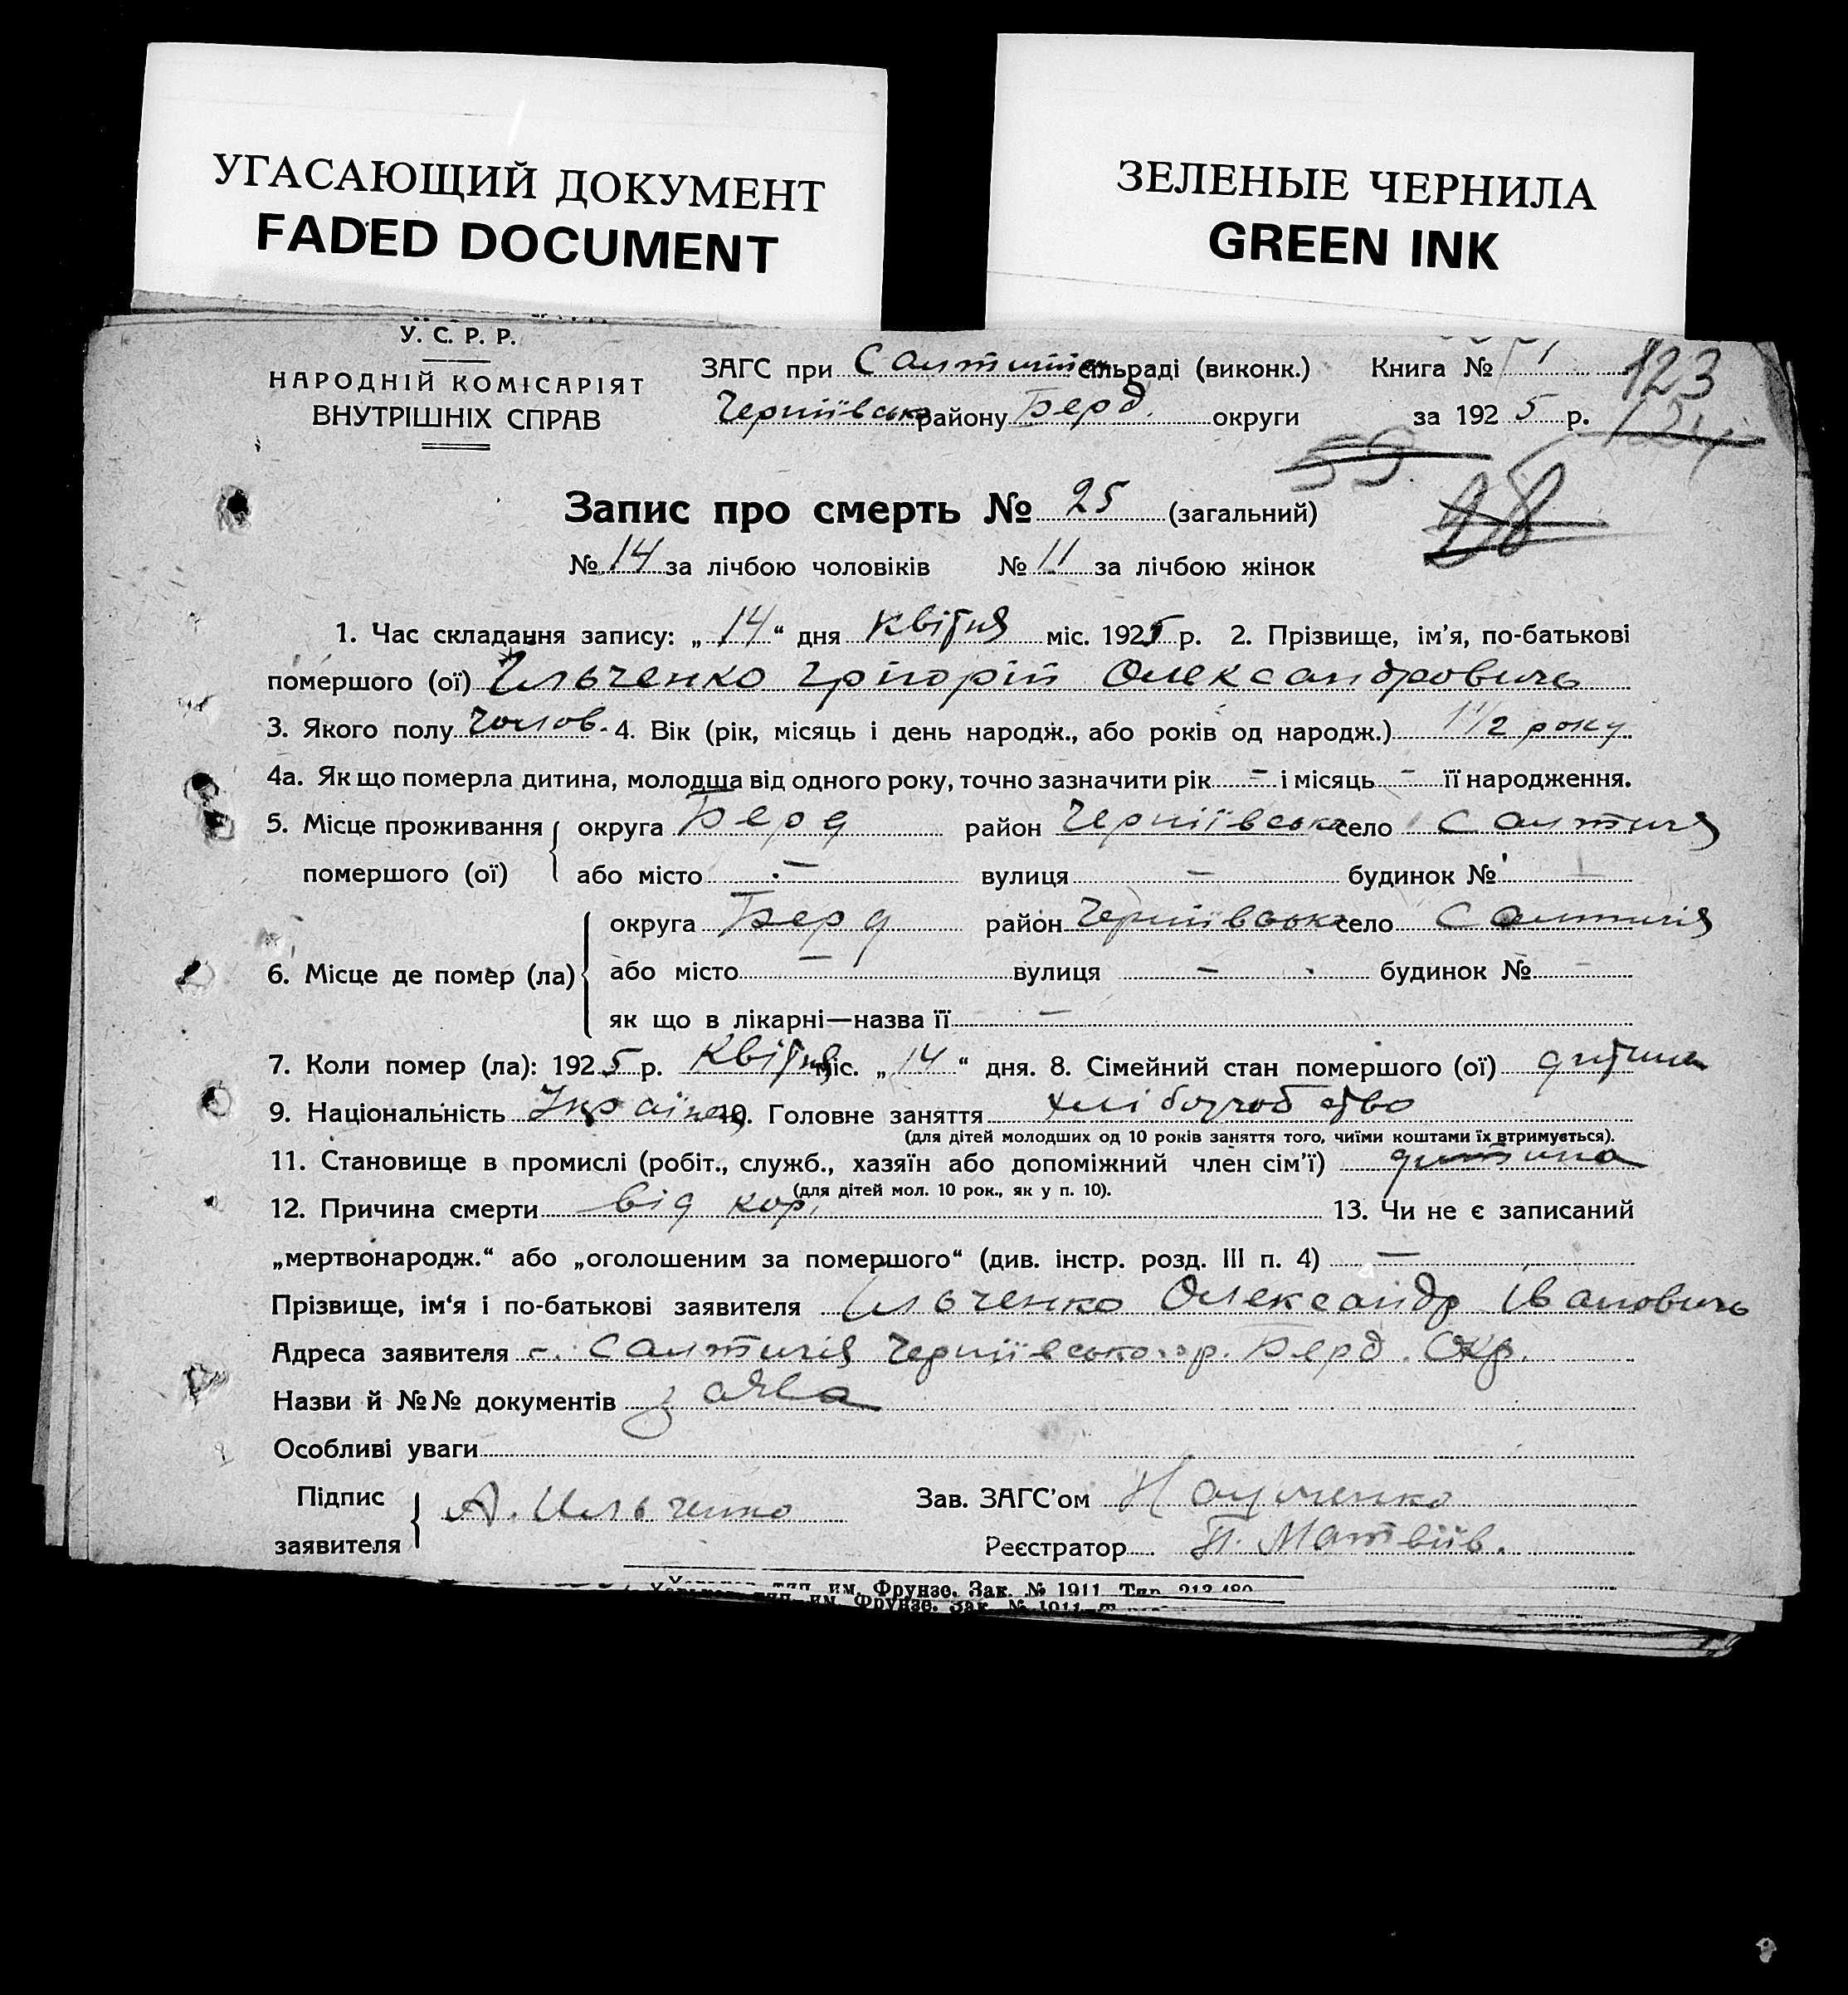 УГАСАЮЩИЙ ДОКУМЕНТ
FADED DOCUMENT
ЗЕЛЕНЫЕ ЧЕРНИЛА
GREEN INK
У. С. Р. Р.
НАРОДНІЙ КОМІСАРІЯТ
ВНУТРІШНІХ СПРАВ
ЗАГС при сільраді (виконк.) Книга № 1 123
Черніівськ району Берд. округи за 1925 р. 124
59
Запис про смерть № 25 (загальний)
№ 14 за лічбою чоловіків № 11 за лічбою жінок
1. Час складання запису: „ 14 “ дня Квітня міс. 1925 р. 2. Прізвище, ім’я, по-батькові
помершого (ої) Ільченко Грігорій Олександровичь
3. Якого полу чолов. 4. Вік (рік, місяць і день народж., або років од народж.) 1 1/2 року
4а. Як що померла дитина, молодша від одного року, точно зазначити рік - і місяць - її народження.
5. Місце проживання округа Берд район Черніівсько село Салтичія
помершого (ої) або місто - вулиця - будинок №
6. Місце де помер (ла) округа Берд район Черніівсько село Салтичія
або місто - вулиця - будинок № -
як що в лікарні—назва її -
7. Коли помер (ла): 1925 р. Квітня міс. „ 14 “ дня. 8. Сімейний стан помершого (ої) дитина
9. Національність Українец 10. Головне заняття хліборобство
(для дітей молодших од 10 років заняття того, чиїми коштами їх втримується).
11. Становище в промислі (робіт., служб., хазяїн або допоміжний член сім’ї) дитина
(для дітей мол. 10 рок., як у п. 10).
12. Причина смерти від кор. 13. Чи не є записаний
„мертвонародж.“ або „оголошеним за помершого“ (див. інстр. розд. III п. 4) —
Прізвище, ім‘я і по-батькові заявителя Ільченко Олександр Івановичь
Адреса заявителя с. Салтичія Черніівського р. Берд. Окр.
Назви й №№ документів заява
Особливі уваги
Підпис заявителя А. Ильченко Зав. ЗАГС’ом Науменко
Реєстратор П. Матвіїв.
им. Фрунзе. Зак. № 1911
им. Фрунзе. Зак. № 1911